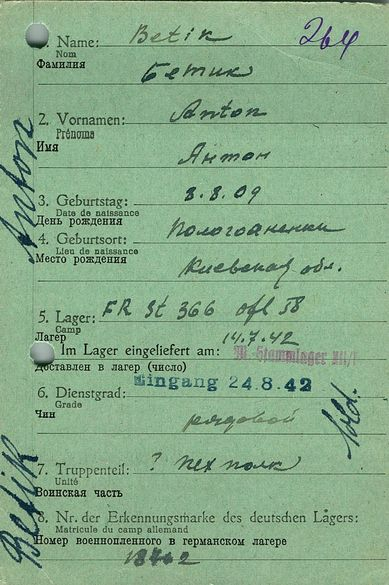 1. Name: Betik
264
Nom
Фамилия
Бетик
2. Vornamen: Anton
Prénoms
Имя
Антон
3. Geburtstag: 3.8.09
Date de naissance
День рождения
4. Geburtsort:
Lieu de naissance
Место рождения
Киевская обл.
5. Lager: FR St 366 ofl 58
Camp
Лагерь
14.7.42
Im Lager eingeliefert am:
M. Stammlager
Доставлен в лагерь (число)
Eingang 24.8.42
6. Dienstgrad:
Grade
Чин
рядовой
Sold.
7. Truppenteil: ? пехполк
Unité
Воинская часть
8. Nr. der Erkennungsmarke des deutschen Lagers:
Matricule du camp allemand
Номер военнопленного в германском лагере
Betik Anton